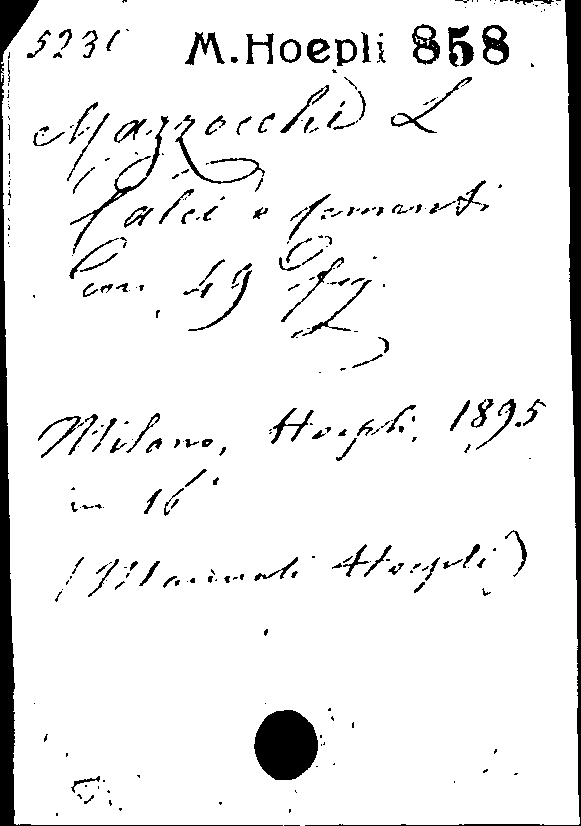 5231 M. Hoepli 858
Mazzocchi L
Calci e cementi
con 49 fig.
Milano, Hoepli, 1895
in 16°
(Manuali Hoepli)